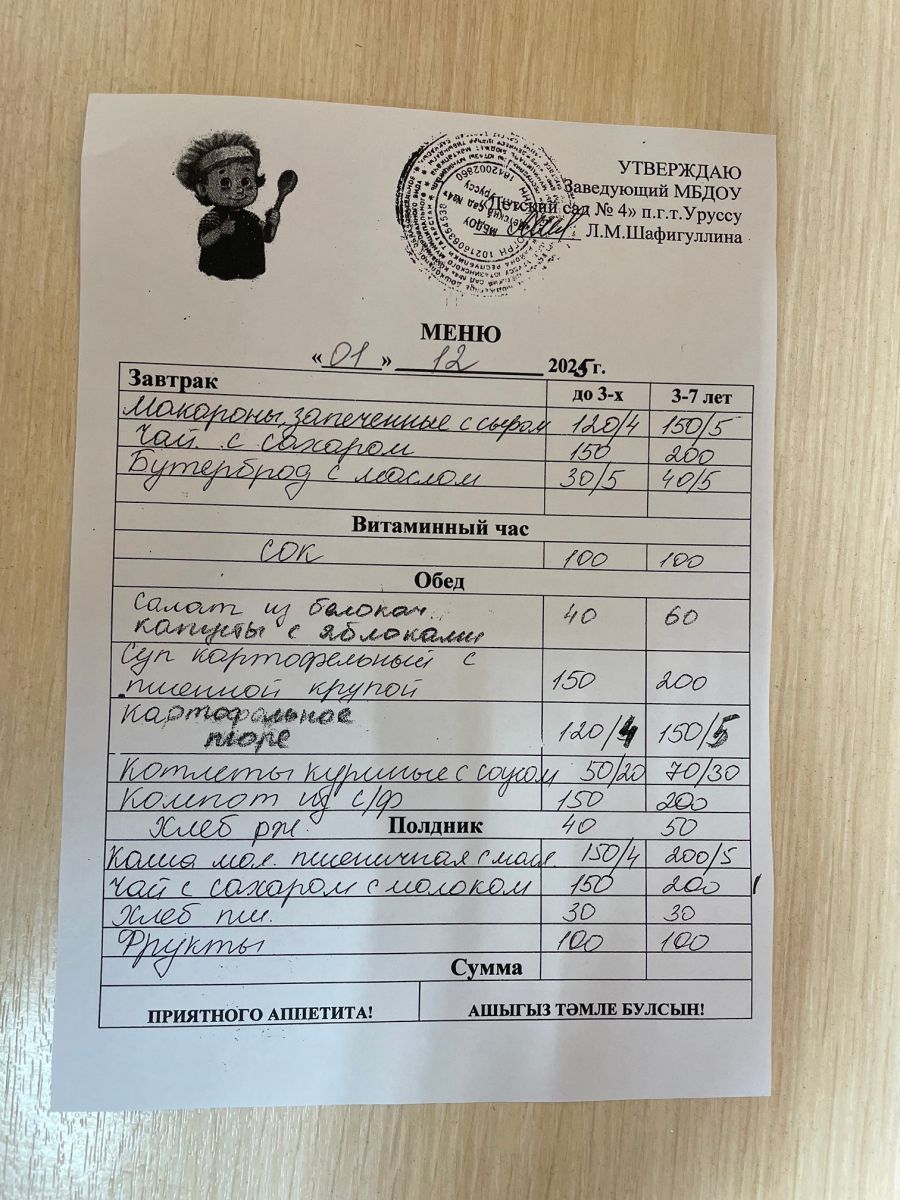 УТВЕРЖДАЮ
Заведующий МБДОУ
«Детский сад № 4» п.г.т.Уруссу
Л.М.Шафигуллина
МЕНЮ
«01» 12 2025 г.
Завтрак до 3-х 3-7 лет
Макароны, запеченные с сыром 120/4 150/5
Чай с сахаром 150 200
Бутерброд с маслом 30/5 40/5
Витаминный час
сок 100 100
Обед
Салат из белокач.
капусты с яблоками 40 60
Суп картофельный с
пшенной крупой 150 200
Картофельное
пюре 120/4 150/5
Котлеты куриные с соусом 50/20 70/30
Компот из с/ф 150 200
Хлеб рж. Полдник 40 50
Каша мол. пшеничная с масл 150/4 200/5
Чай с сахаром с молоком 150 200
Хлеб пш. 30 30
Фрукты 100 100
Сумма
ПРИЯТНОГО АППЕТИТА! АШЫГЫЗ ТӘМЛЕ БУЛСЫН!